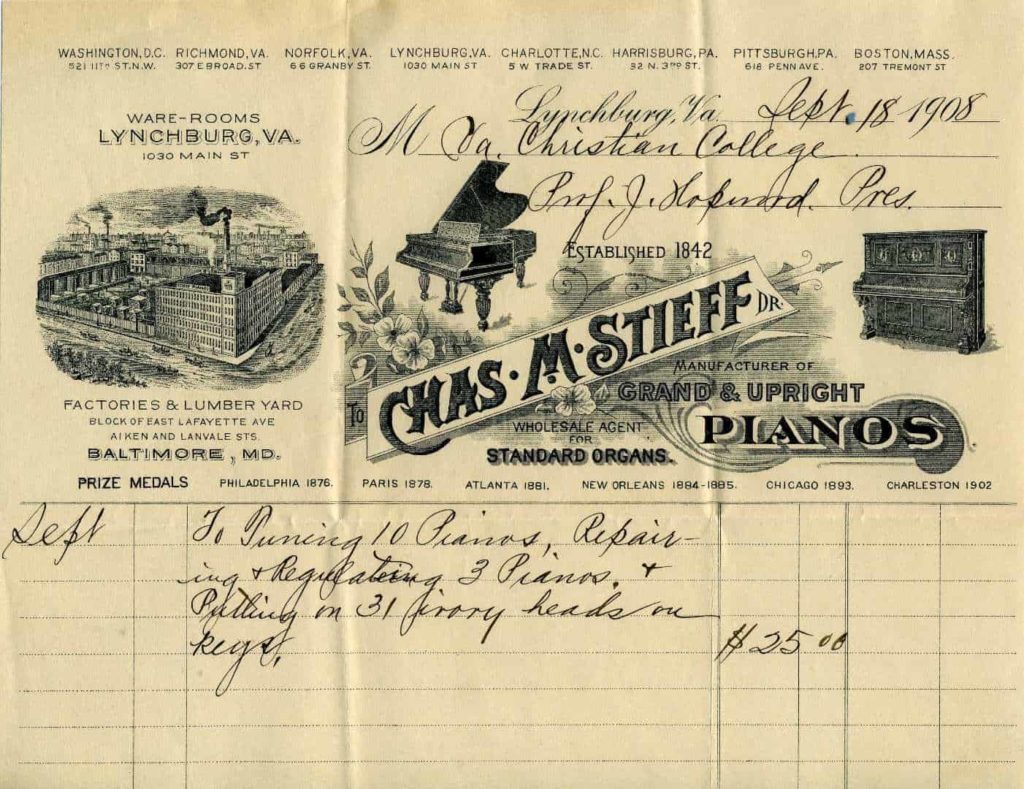 WASHINGTON, D.C. RICHMOND, VA. NORFOLK, VA. LYNCHBURG, VA. CHARLOTTE, N.C. HARRISBURG, PA. PITTSBURGH, PA. BOSTON, MASS.
521 11TH ST. N.W. 307 E BROAD. ST 66 GRANBY ST. 1030 MAIN ST 5 W TRADE ST. 32 N. 3RD ST. 618 PENN AVE. 207 TREMONT ST
WARE-ROOMS
LYNCHBURG, VA.
1030 MAIN ST
Lynchburg, Va. Sept. 18 1908
M Va. Christian College.
Prof. J. Hopwood. Pres.
ESTABLISHED 1842
TO CHAS. M. STIEFF DR.
MANUFACTURER OF
GRAND & UPRIGHT
PIANOS
WHOLESALE AGENT
FOR
STANDARD ORGANS.
FACTORIES & LUMBER YARD
BLOCK OF EAST LAFAYETTE AVE
AIKEN AND LANVALE STS.
BALTIMORE, MD.
PRIZE MEDALS PHILADELPHIA 1876. PARIS 1878. ATLANTA 1881. NEW ORLEANS 1884-1885. CHICAGO 1893. CHARLESTON 1902
Sept To Tuning 10 Pianos, Repair-
ing & Regulating 3 Pianos. &
Putting on 31 ivory heads on
keys. $25 00